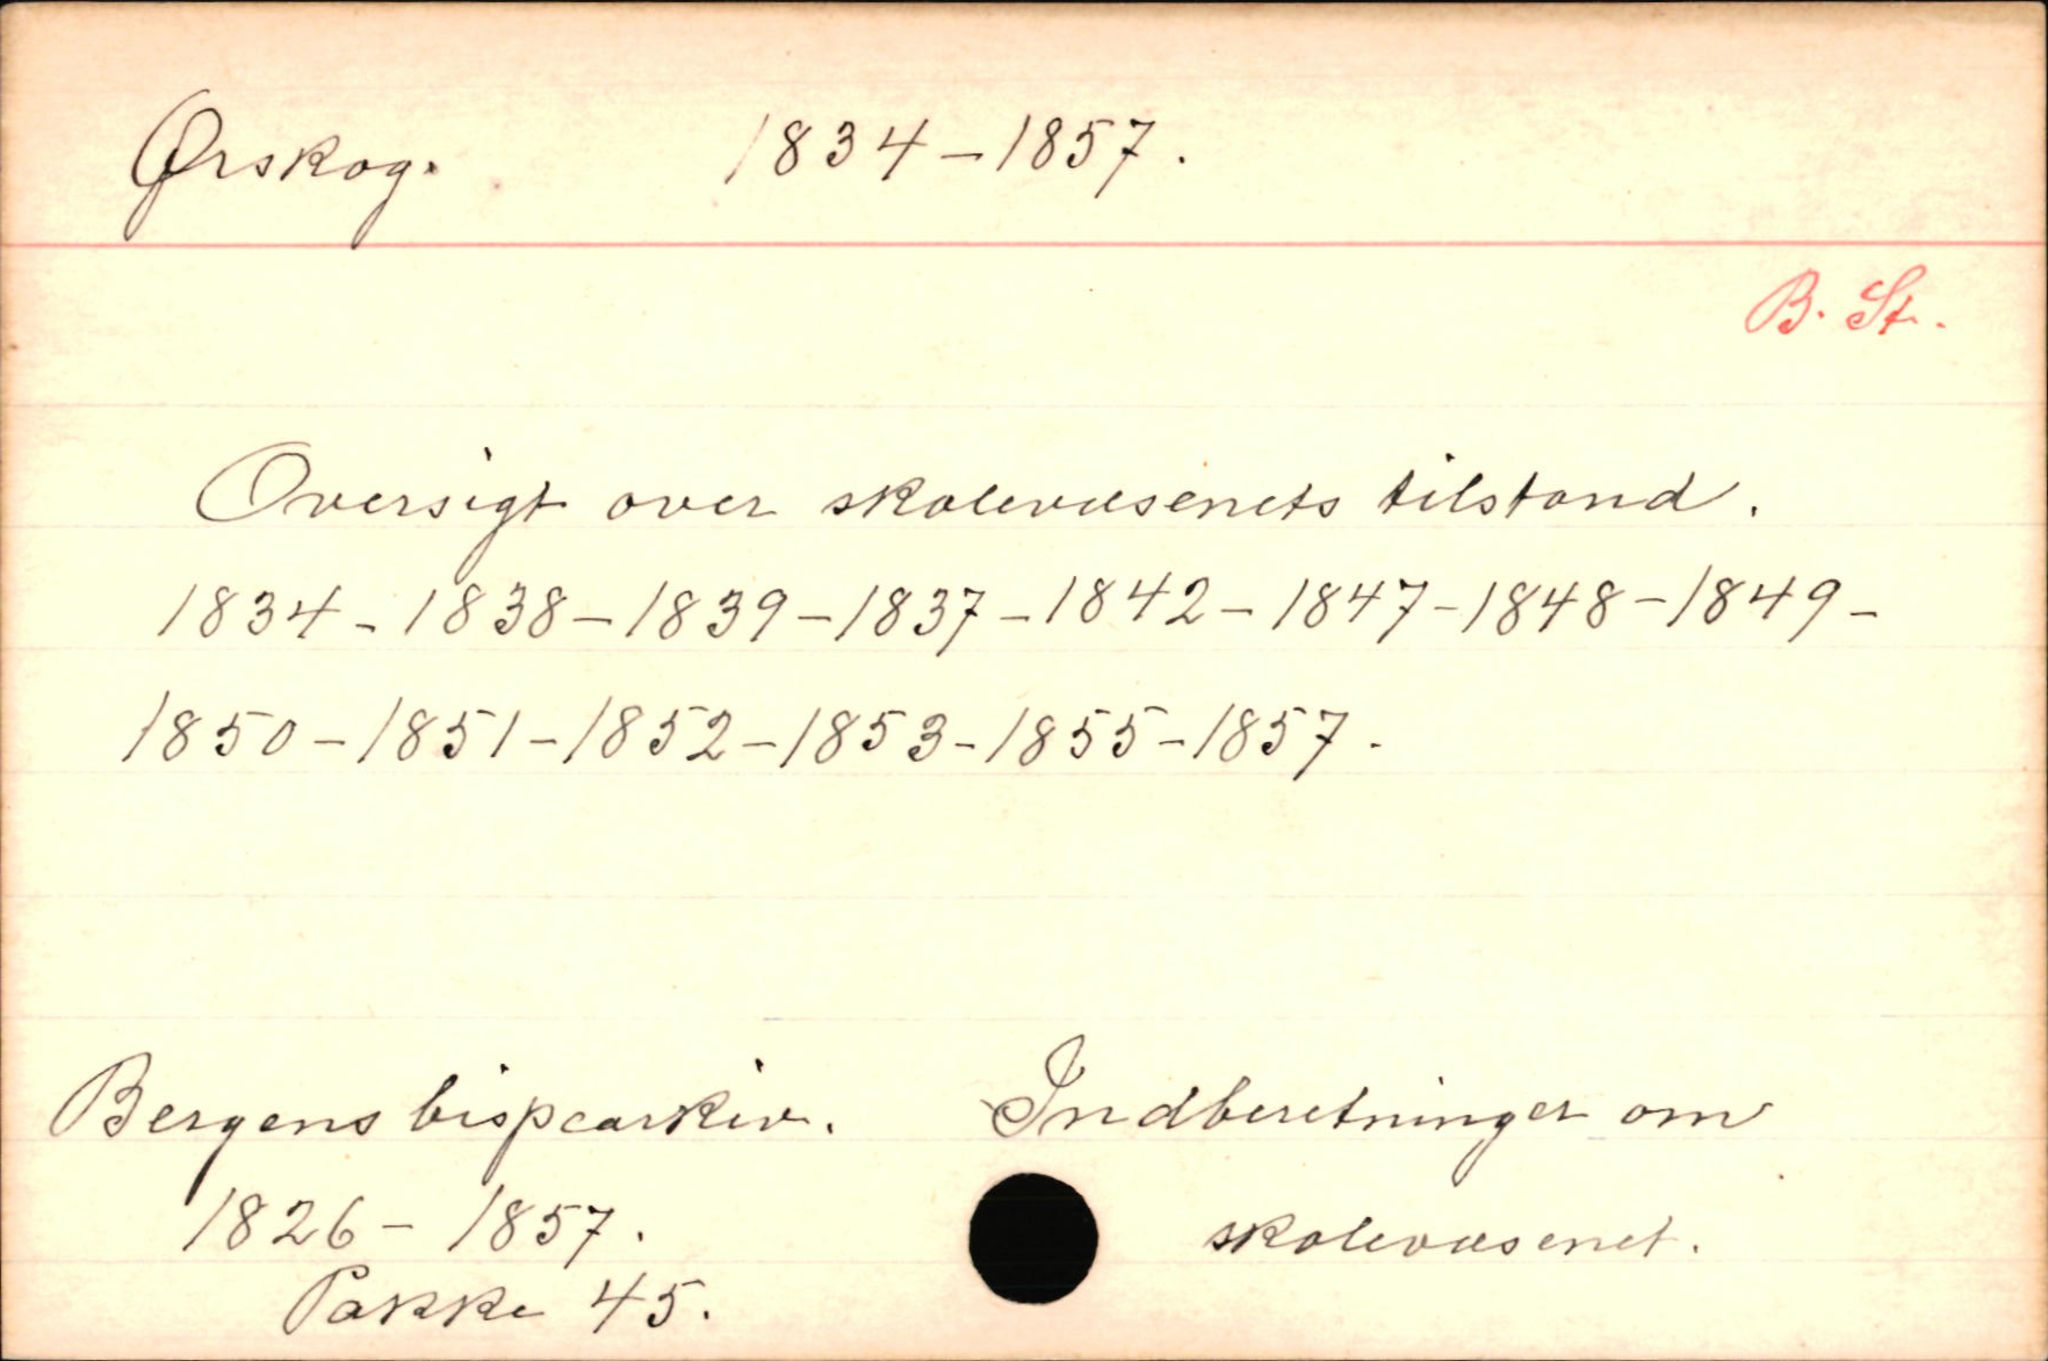 Ørskog. 1834-1857.
B. St.
Oversigt over skolevæsenets tilstand.
1834-1838-1839-1837-1842-1847-1848-1849-
1850-1851-1852-1853-1855-1857.
Bergens bispearkiv. Indberetninger om
1826-1857. skolevæsenet.
Pakke 45.